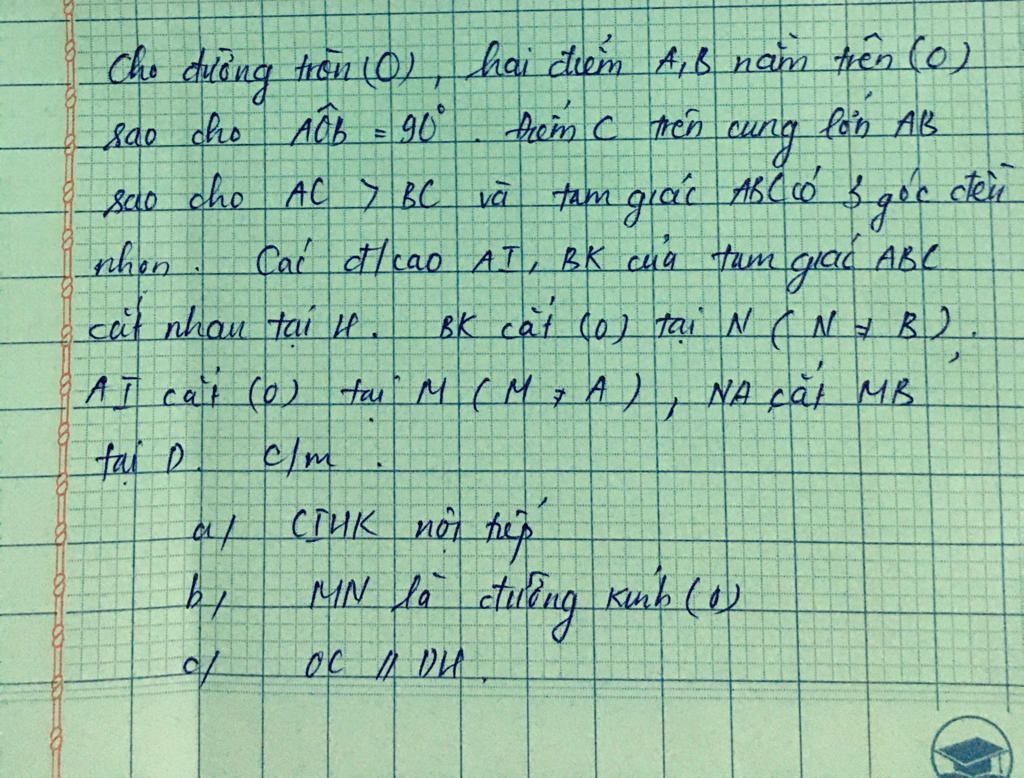 Cho đường tròn (O), hai điểm A,B nằm trên (O)
sao cho AÔB = 90°. Điểm C trên cung lớn AB
sao cho AC > BC và tam giác ABC có 3 góc đều
nhọn. Các đ/cao AI, BK của tam giác ABC
cắt nhau tại H. BK cắt (O) tại N (N ≠ B).
AI cắt (O) tại M (M ≠ A), NA cắt MB
tại D. C/m.
a/ CIHK nội tiếp
b/ MN là đường kính (O)
c/ OC // DH.